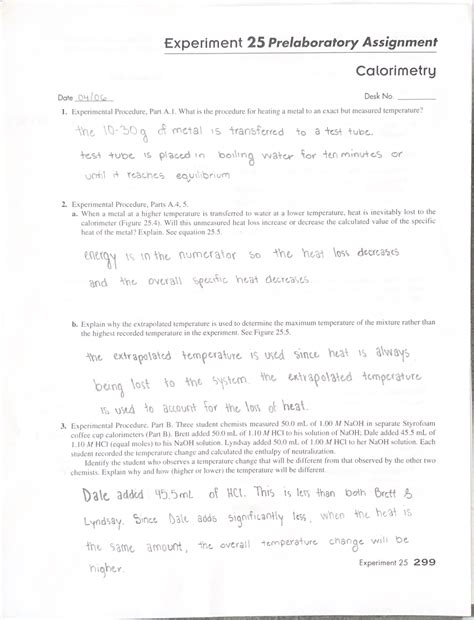 Experiment 25 Prelaboratory Assignment
Calorimetry
Date 04/06
Desk No.
1. Experimental Procedure, Part A.1. What is the procedure for heating a metal to an exact but measured temperature?
the 10-30g of metal is transferred to a test tube.
test tube is placed in boiling water for ten minutes or
until it reaches equilibrium
2. Experimental Procedure, Parts A.4, 5.
a. When a metal at a higher temperature is transferred to water at a lower temperature, heat is inevitably lost to the
calorimeter (Figure 25.4). Will this unmeasured heat loss increase or decrease the calculated value of the specific
heat of the metal? Explain. See equation 25.5.
energy is in the numerator so the heat loss decreases
and the overall specific heat decreases.
b. Explain why the extrapolated temperature is used to determine the maximum temperature of the mixture rather than
the highest recorded temperature in the experiment. See Figure 25.5.
the extrapolated temperature is used since heat is always
being lost to the system. the extrapolated temperature
is used to account for the loss of heat.
3. Experimental Procedure, Part B. Three student chemists measured 50.0 mL of 1.00 M NaOH in separate Styrofoam
coffee cup calorimeters (Part B). Brett added 50.0 mL of 1.10 M HCl to his solution of NaOH; Dale added 45.5 mL of
1.10 M HCl (equal moles) to his NaOH solution. Lyndsay added 50.0 mL of 1.00 M HCl to her NaOH solution. Each
student recorded the temperature change and calculated the enthalpy of neutralization.
Identify the student who observes a temperature change that will be different from that observed by the other two
chemists. Explain why and how (higher or lower) the temperature will be different.
Dale added 45.5mL of HCl. This is less than both Brett &
Lyndsay. Since Dale adds significantly less, when the heat is
the same amount, the overall temperature change will be
higher.
Experiment 25 299